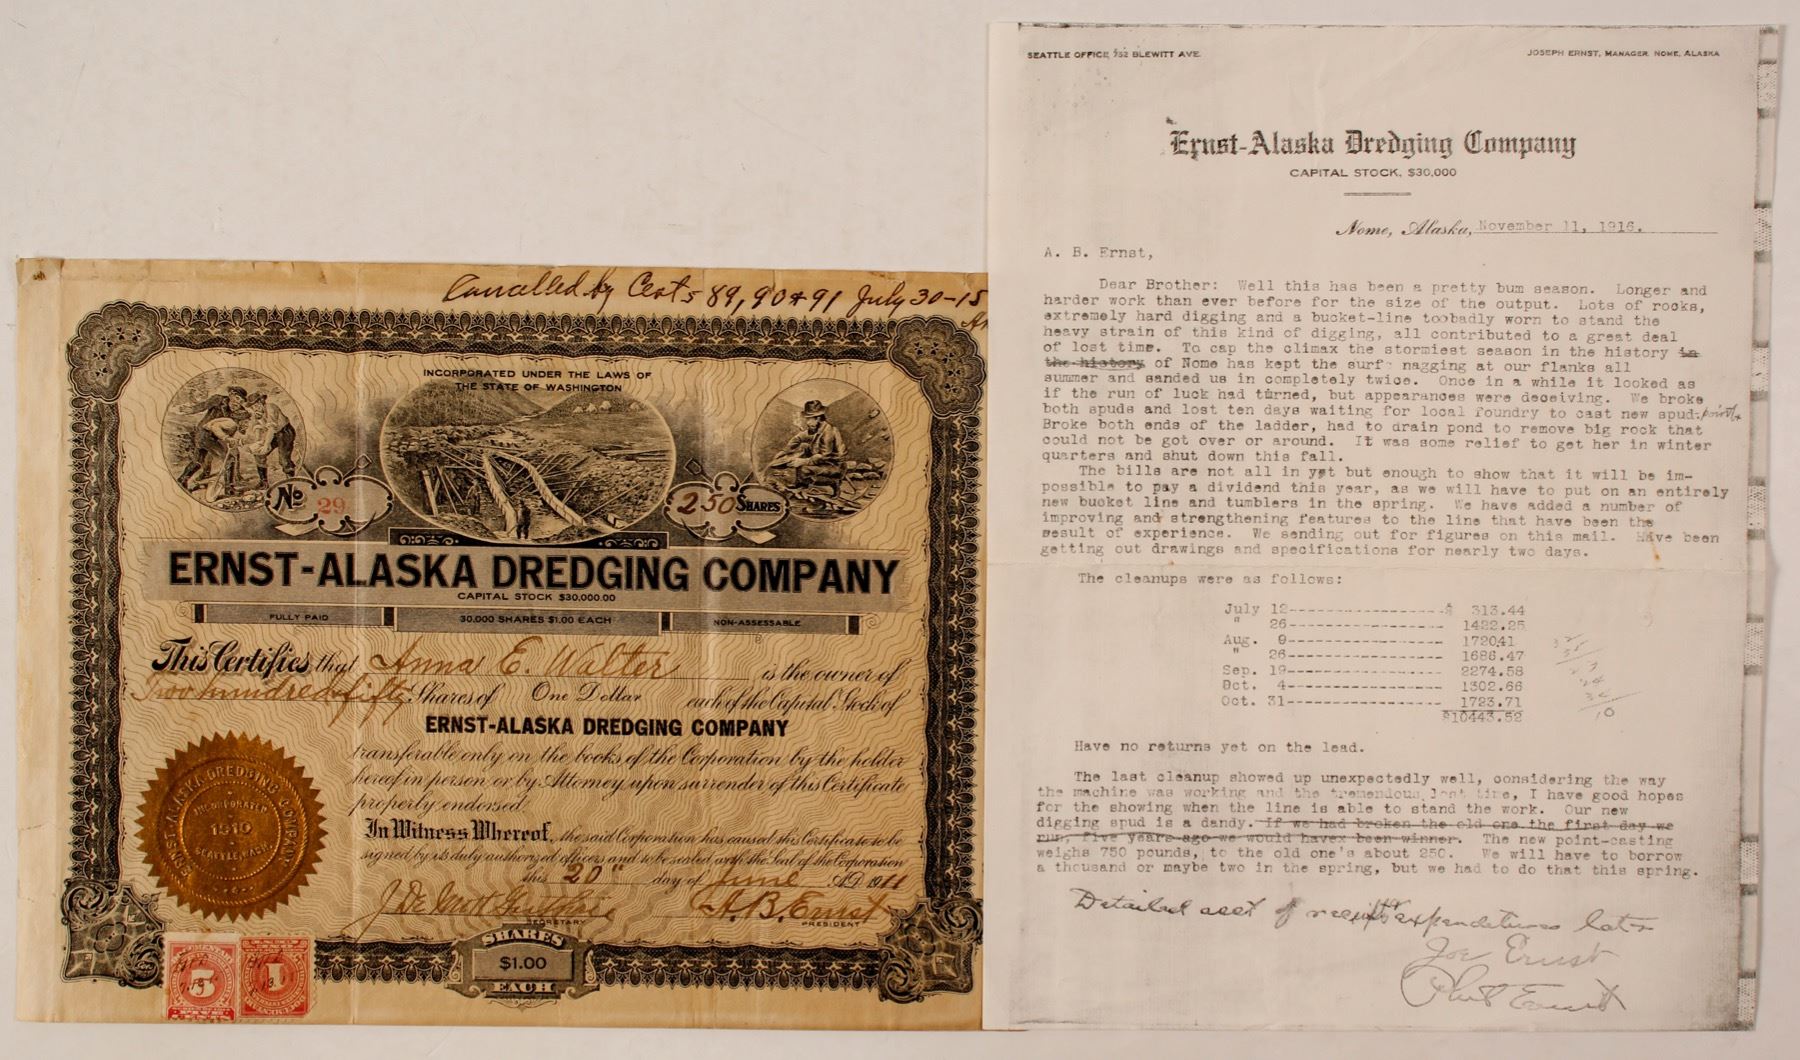 Cancelled by Certs 89, 90 & 91 July 30-15
INCORPORATED UNDER THE LAWS OF
THE STATE OF WASHINGTON
No 29
250 SHARES
ERNST-ALASKA DREDGING COMPANY
CAPITAL STOCK $30,000.00
FULLY PAID
30,000 SHARES $1.00 EACH
NON-ASSESSABLE
This Certifies that Anna E. Walter is the owner of
Two hundred fifty Shares of One Dollar each of the Capital Stock of
ERNST-ALASKA DREDGING COMPANY
transferable only on the books of the Corporation by the holder
hereof in person or by Attorney upon surrender of this Certificate
properly endorsed.
In Witness Whereof, the said Corporation has caused this Certificate to be
signed by its duly authorized officers and to be sealed with the Seal of the Corporation
this 20" day of June A.D. 1911
A.B. Ernst
SECRETARY
PRESIDENT
ERNST-ALASKA DREDGING COMPANY
INCORPORATED
1910
SEATTLE, WASH.
SHARES
$1.00
EACH
5
1
SEATTLE OFFICE, 752 BLEWITT AVE.
JOSEPH ERNST, MANAGER, NOME, ALASKA
Ernst-Alaska Dredging Company
CAPITAL STOCK, $30,000
Nome, Alaska, November 11, 1916.
A. B. Ernst,
Dear Brother: Well this has been a pretty bum season. Longer and
harder work than ever before for the size of the output. Lots of rocks,
extremely hard digging and a bucket-line toobadly worn to stand the
heavy strain of this kind of digging, all contributed to a great deal
of lost time. To cap the climax the stormiest season in the history in
the history of Nome has kept the surf nagging at our flanks all
summer and sanded us in completely twice. Once in a while it looked as
if the run of luck had turned, but appearances were deceiving. We broke
both spuds and lost ten days waiting for local foundry to cast new spud-points
Broke both ends of the ladder, had to drain pond to remove big rock that
could not be got over or around. It was some relief to get her in winter
quarters and shut down this fall.
The bills are not all in yet but enough to show that it will be im-
possible to pay a dividend this year, as we will have to put on an entirely
new bucket line and tumblers in the spring. We have added a number of
improving and strengthening features to the line that have been the
result of experience. We sending out for figures on this mail. Have been
getting out drawings and specifications for nearly two days.
The cleanups were as follows:
July 12--------------------$ 313.44
" 26-------------------- 1422.25
Aug. 9-------------------- 172041
" 26-------------------- 1686.47
Sep. 19-------------------- 2274.58
Oct. 4-------------------- 1302.66
Oct. 31-------------------- 1723.71
$10443.52
Have no returns yet on the lead.
The last cleanup showed up unexpectedly well, considering the way
the machine was working and the tremendous lost time, I have good hopes
for the showing when the line is able to stand the work. Our new
digging spud is a dandy. If we had broken the old one the first day we
run, five years ago we would havex been winner. The new point-casting
weighs 750 pounds, to the old one's about 250. We will have to borrow
a thousand or maybe two in the spring, but we had to do that this spring.
Detailed acct of receipts & expenditures later
Joe Ernst
Ernst